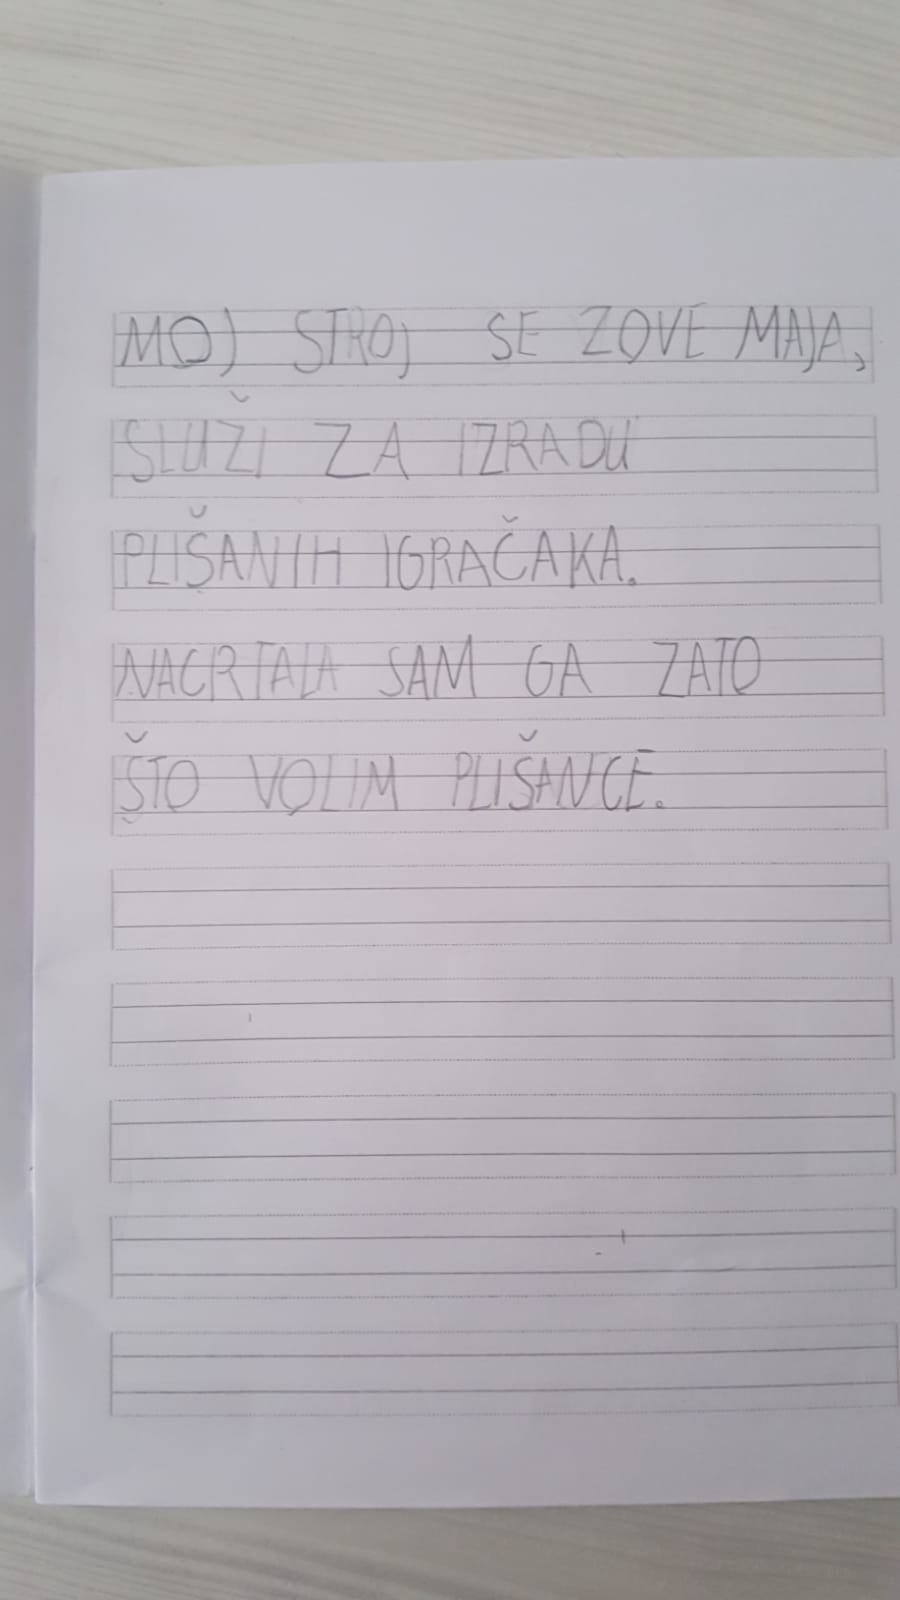 MOJ STROJ SE ZOVE MAJA,
SLUŽI ZA IZRADU
PLIŠANIH IGRAČAKA.
NACRTALA SAM GA ZATO
ŠTO VOLIM PLIŠANCE.